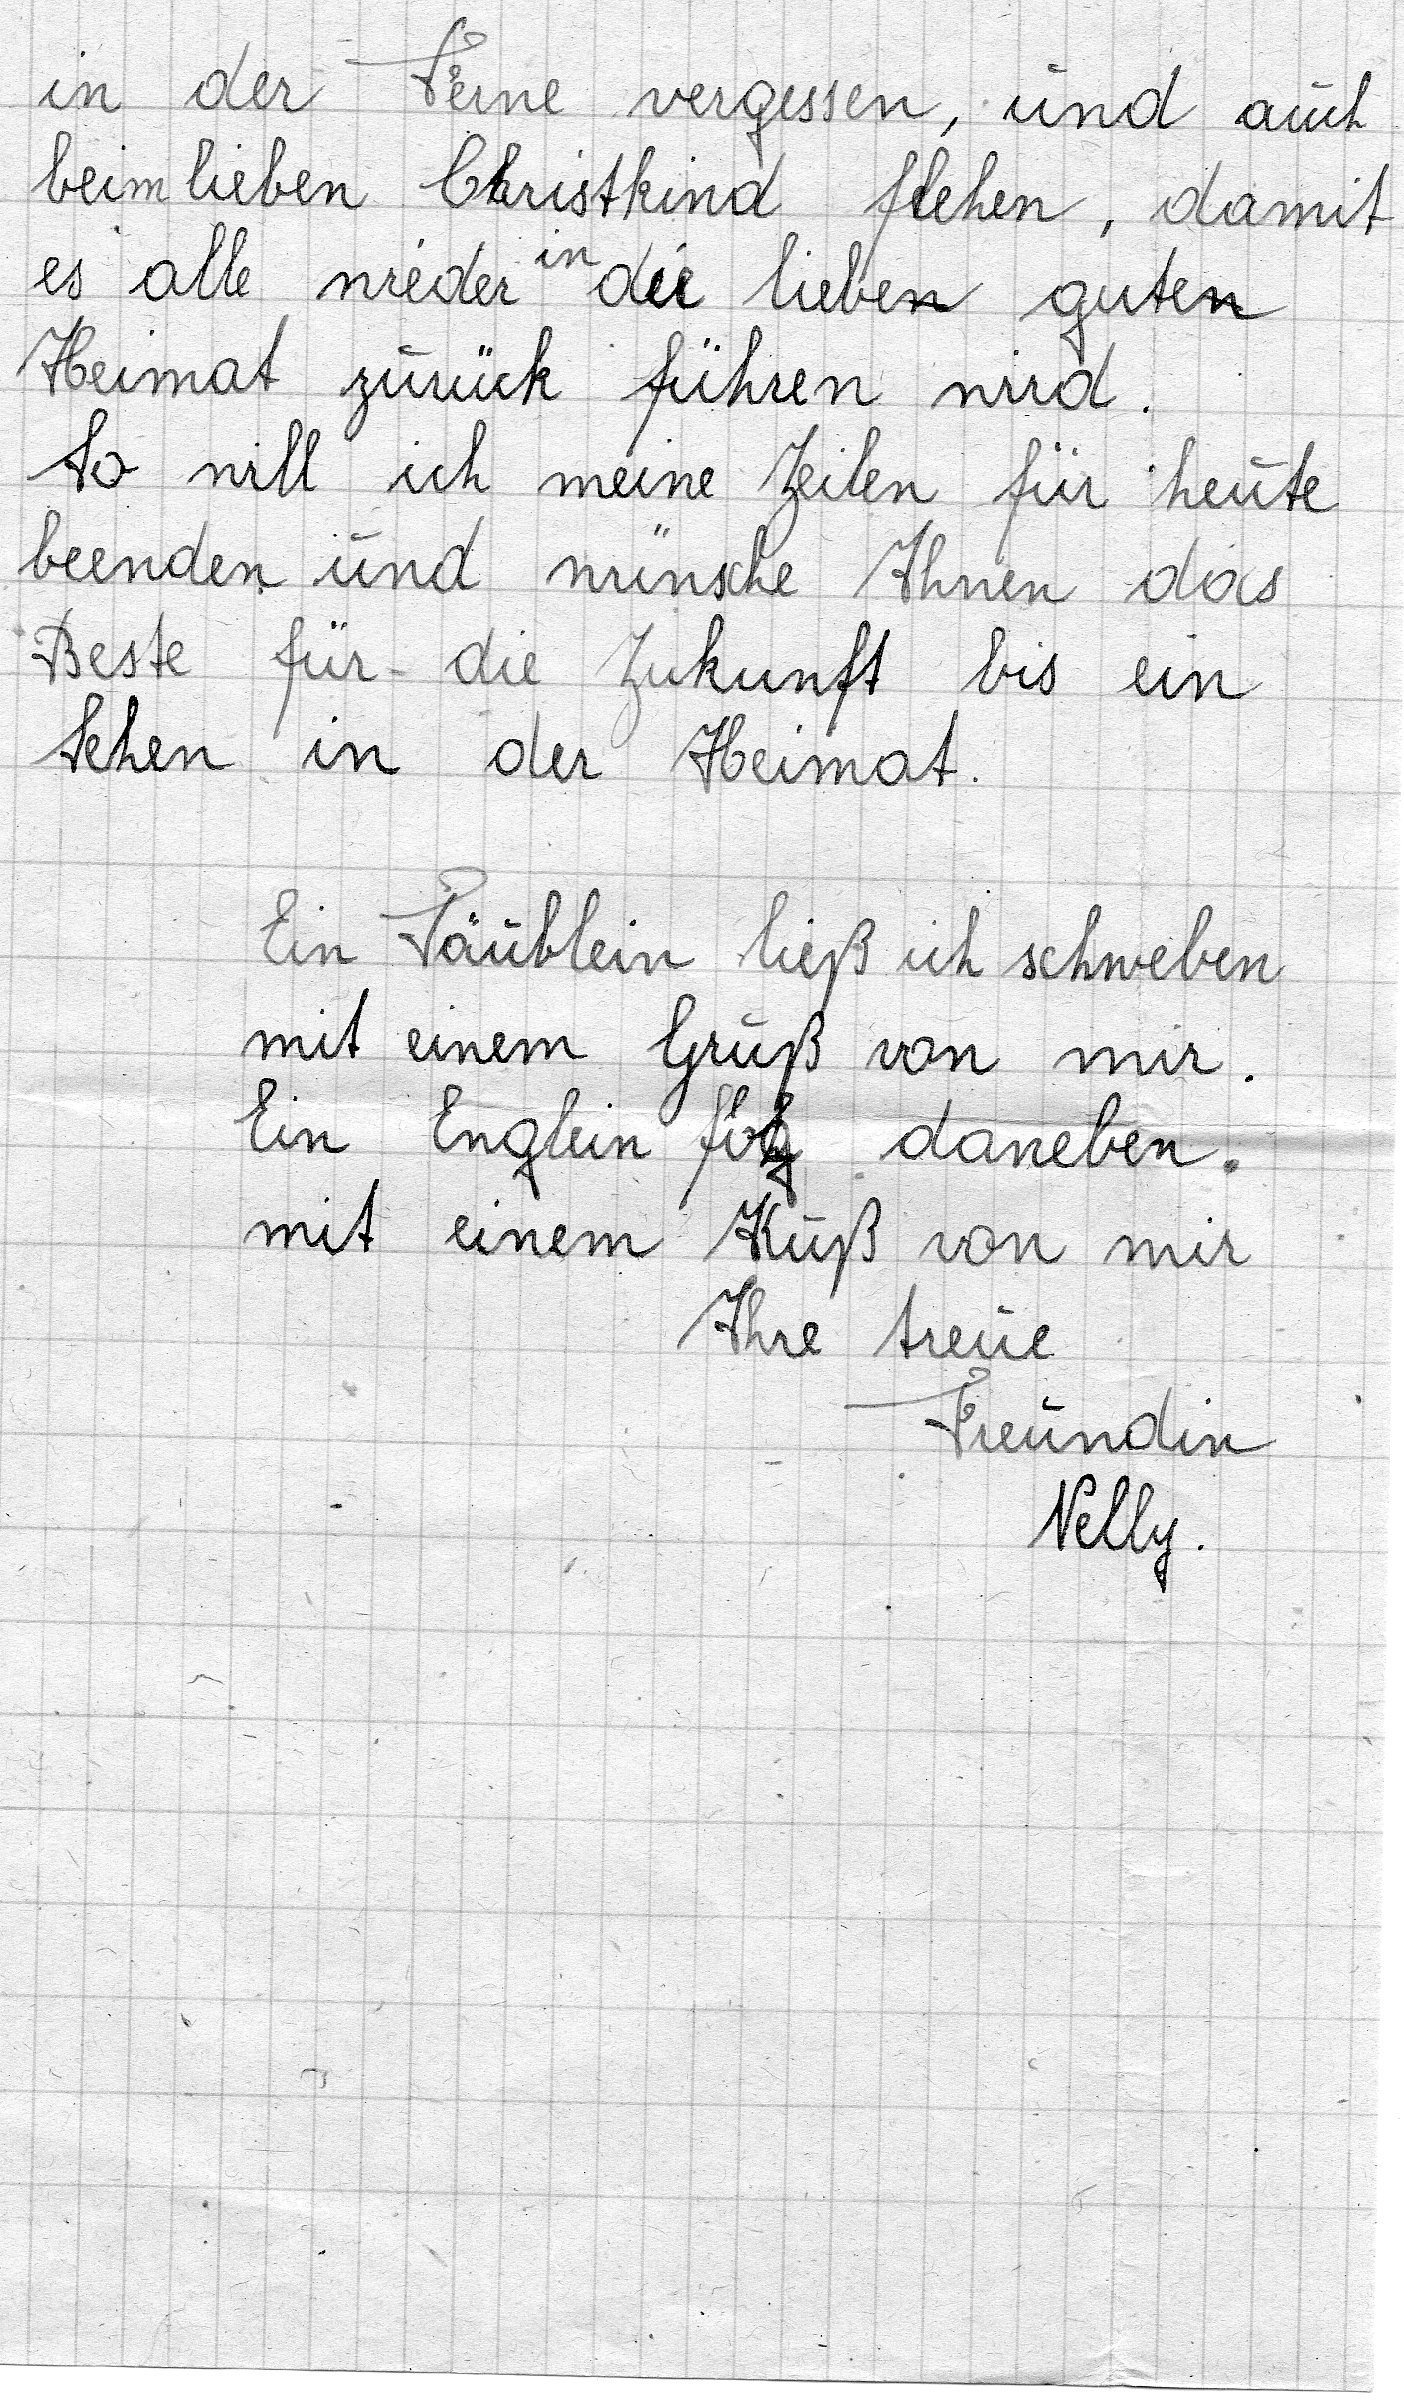 in der Ferne vergessen, und auch
beim lieben Christkind flehen, damit
es alle wieder in die lieben guten
Heimat zurück führen wird.
So will ich meine Zeilen für heute
beenden und wünsche Ihnen das
Beste für die Zukunft bis ein
Sehen in der Heimat.
Ein Täublein ließ ich schweben
mit einem Gruß von mir.
Ein Englein flog daneben.
mit einem Kuß von mir
Ihre treue
Freundin
Nelly.